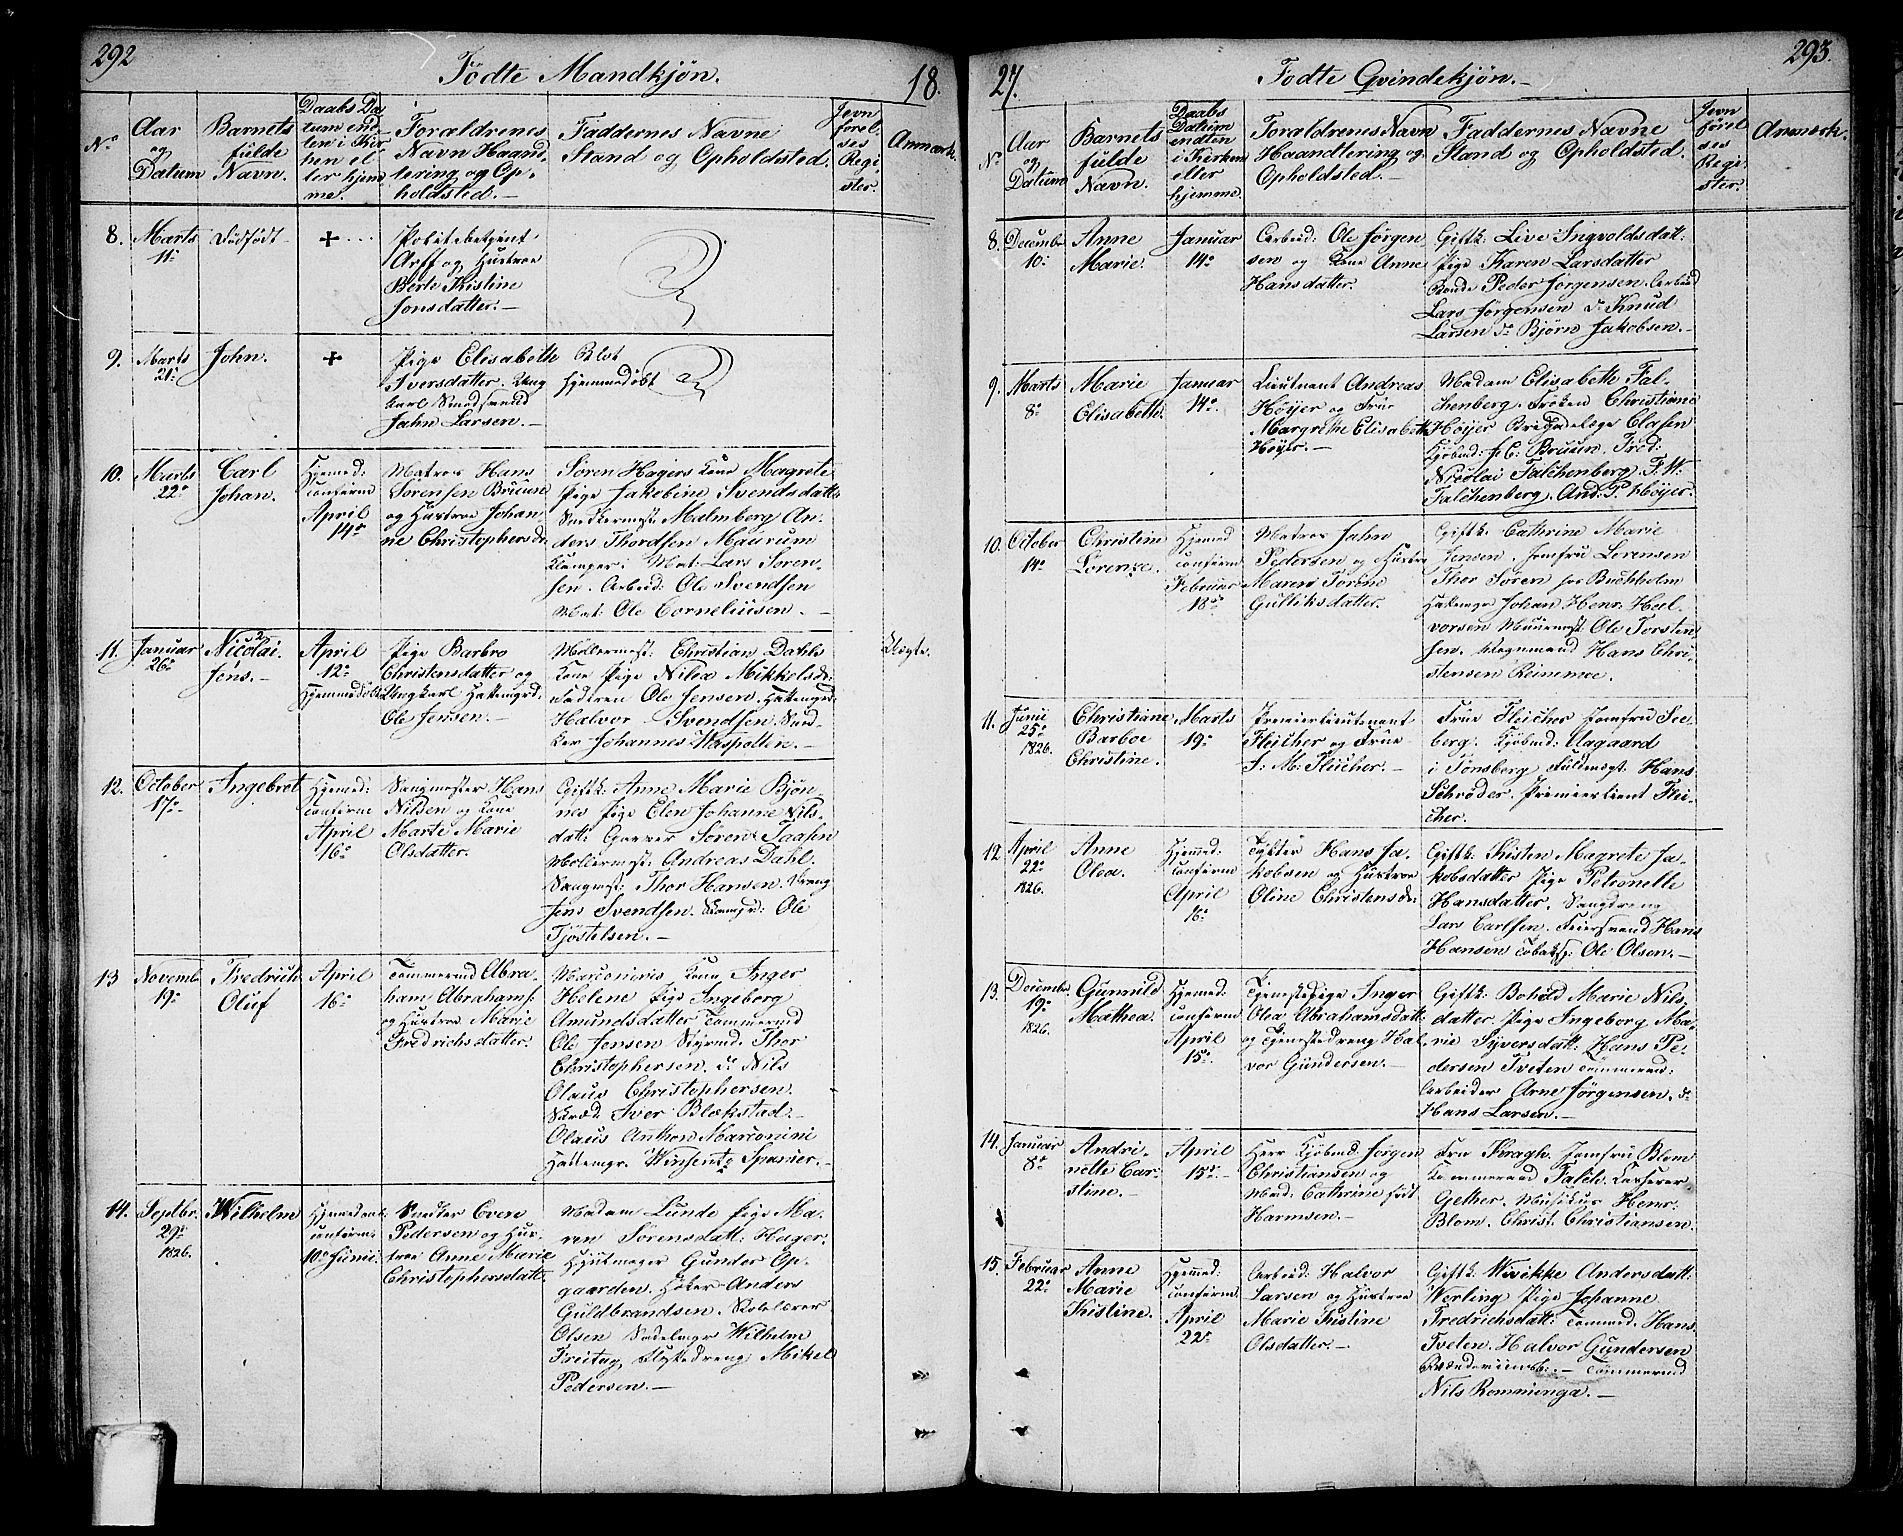 292
Födte Mandkjön.
18.
No
Aar
og
Datum
Barnets
fulde
Navn.
Daabs Da-
tum end-
ten i Kir-
ken el
ler hjem
me.
Forældrenes
Navn Haand-
tering og Op-
holdsted.—
Faddernes Navne
Stand og Opholdsted.
Jevn
förel-
ses
Regi-
ster.
Anmærk.
8.
Marts
11.
Dödfödt
+
og Hustroe
Berte Kistine
Jonsdatter.—
9.
Marts
21.
John.
+
Pige Elisabeth
Iversdatter. Ung
karl
Jahn Larsen.—
Blot
hjemmedöbt
10.
Marts
22o
Carl
Johan.
Hjemed:
confirm
April
14o
Matros Hans
Sörensen Bruun
og Hustroe Johan-
ne Christophersdr
Sören Hagers Kone Magrete
Pige Jakobine Svendsdatter
Malmberg An-
ders Thordsen Maurum
Mat: Lars Sören-
sen. Arbeid: Ole Svendsen
Mat: Ole Corneliusen.—
11.
Januar
26o
Nicolai.
Jens.—
April
12o
Hjemmedöbt
Pige Barbro
Christensdatter og
Ungkarl Hattemgrd.
Ole Jensen.—
Möllermest: Christian Dahls
Kone Pige Nilea Mikkelsdr.
Ole Jensen. Hattemgrd.
Halvor Svendsen
Johannes Waspetten.—
Uægte.
12.
October
17o
Ingebret
Hjemed:
confirm
April
16o
Saugmester Hans
Nilsen og Kone
Marte Marie
Olsdatter.
Giftk: Anne Marie Bjön-
nes Pige Elen Johanne Nils-
datt: Garver Sören Taasen
Möllermest: Andreas Dahl.
Saugmest: Thor Hansen. Dreng
Jens Svendsen. Ole
Tjöstelsen.—
13
Novemb.
19o
Fredrich
Oluf
April
16o
Tömmermd Abra-
ham Abrahams:
og Hustroe Marie
Fredrichsdatter.
Marconinis Kone Inger
Helene Pige Ingeborg
Amundsdatter Tömmermd
Ole Jensen Styrmd. Thor
Christophersen. do Nils
Olaus Christophersen.
Skræd. Iver Blekstad.—
Olaus Anthon Marconini
Hattemgr. Winsente Spanier.—
14.
Septbr.
29o
1826.
Wilhelm
Hjemedöbt
confirm:
10o Junii.
Snedker Evere
Pedersen og Hus-
troe Anne Marie
Christophersdatt.
Madam Lunde Pige Ma-
ren Sörensdatt: Hager.
Hjulmager Gunder Op-
gaarden. Höker Anders
Guldbrandsen. Skolelærer
Olsen Sadelmgr Wilhelm
Freitag Mikel
Pedersen.—
27.
Födte Qvindekjön.—
293.
No
Aar
og
Datum
Barnets
fulde
Navn.
Daabs
Datum
endten
i Kirken
eller
hjemme.
Forældrenes Navn
Haandtering og
Opholdsted.—
Faddernes Navne
Stand og Opholdsted.
Jevn
förel
ses
Regi-
ster.
Anmærk.
8.
Decembr
10.
Anne
Marie.
Januar
14o
Arbeid: Ole Jörgen
sen og Kone Anne
Hansdatter.
Giftk: Live Ingvoldsdatt:
Pige Karen Larsdatter
Bonde Peder Jorgensen. Arbeid
Lars Jorgensen do Knud
Larsen do Björn Jakobsen.—
9.
Marts
8o
Marie
Elisabeth.
Januar
14o
Lieutnant Andreas
Höyer og Frue
Margrethe Elisabeth
Höyer.—
Madam Elisabeth Fal-
chenberg. Fröken Christiane
Höyer Brigadelæge Clasen
Kjöbmd: Bruun. Fred:
Nicolai Falchenberg. F. W.
Falchenberg. And: P. Höyer.
10.
October
14o
Christine
Lorenze.
Hjemed
confirm
Februar
18o
Matros Jahn
Pedersen og Hustroe
Maren Torine
Gulliksdatter.
Giftk: Cathrine Marie
Jensen. Jomfru Lorensen
Thor Sören Buchholm
Hattemgr Johan Henr. Hal-
vorsen Muurmest: Ole Torsten
sen. Vognmand Hans Chri-
stensen Rimmoe.
11.
Junii
25o
1826.
Christiane
Barboe
Christine.
Marts
19o
Premierlieutenant
Fleicher og Frue
J. M. Fleicher.—
Frue Fleicher Jomfru See-
berg. Kjöbmd: Aagaard
i Tönsberg Fuldmægt: Hans
Schröder. Premierlieut Flei-
cher.
12
April
22o
1826.
Anne
Olea.
Hjemed:
confirm
April
16o
Hans Ja-
kobsen og Hustroe
Oline Christensdr
Giftk: Kisten Magrete Ja-
kobsdatter Pige Petronelle
Hansdatter. Saugdreng
Lars Carlsen. Feiersvend Hans
Hansen Ole Olsen.—
13.
Decembr
19o
1826.
Gunnild
Mathea.
Hjemed:
confirm
April
15o
Tjenestepige Inger
Olea Abrahamsdatt:
og Tjenestedreng Hal
vor Gundersen.—
Giftk: Bohild Marie Nils-
datter, Pige Ingeborg Ma-
rie Syversdatt: Hans Pe-
dersen Tveten Tömmermd:
Arbeider Arne Jörgensen. do
Hans Larsen.—
14.
Januar
8o
Andri-
nette Car-
stine.—
April
15o—
Herr Kjöbmd Jörgen
Christiansen og
Mad: Cathrine födt
Harmsen.—
Frue Kragh. Jomfru Blom
Kammerraad Falch. Kasserer
Gether. Musikus Henr.
Blom. Christ. Christiansen.
15.
Februar
22o
Anne
Marie
Kistine.
Hjemed:
confirm
April
22o
Arbeid: Halvor
Larsen og Hustroe
Marie Kistine
Olsdatter.—
Giftk: Wivikke Andersdatt:
Werling Pige Johanne
Fredrichsdatt: Tömmd. Hans
Tveten. Halvor Gundersen
Tömmermd
Nils Romminga.—